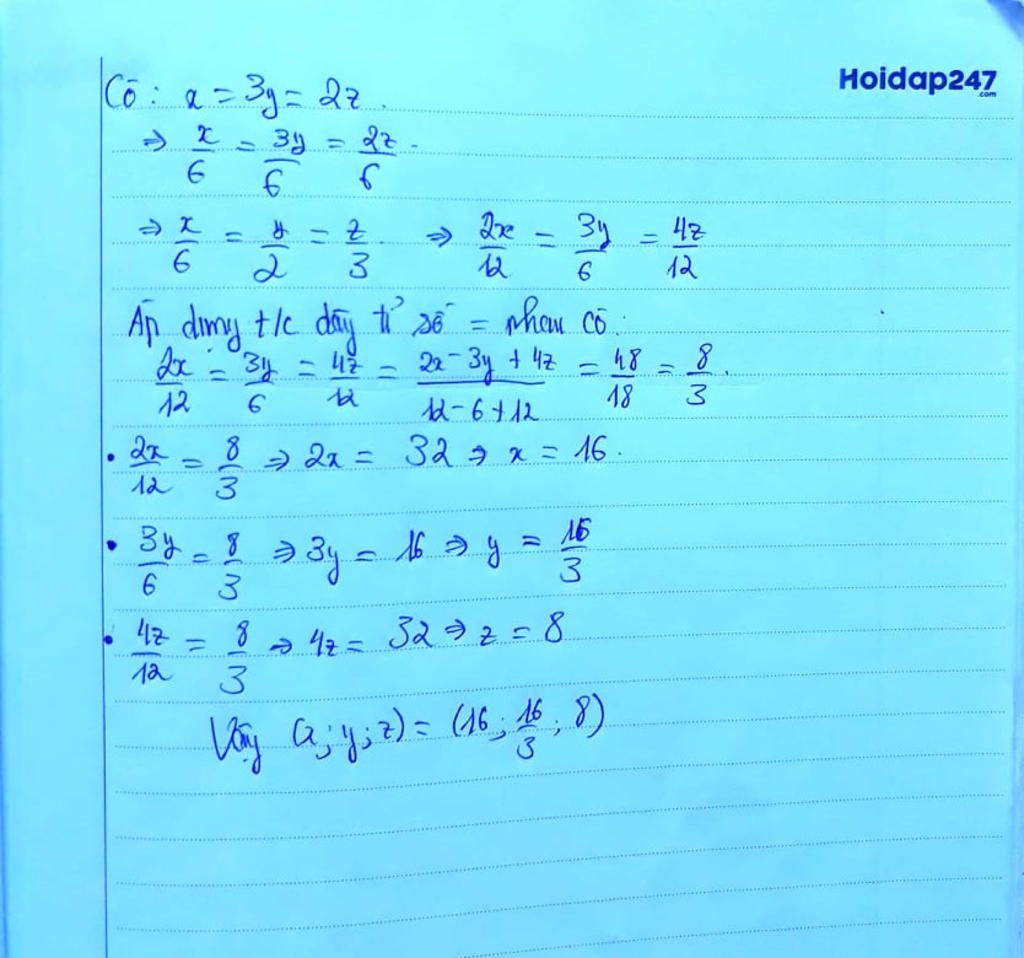 Hoidap247
.com
Có: x = 3y = 2z.
⇒ x/6 = 3y/6 = 2z/6.
⇒ x/6 = y/2 = z/3. ⇒ 2x/12 = 3y/6 = 4z/12
Áp dụng t/c dãy tỉ số = nhau có:
2x/12 = 3y/6 = 4z/12 = (2x - 3y + 4z)/(12 - 6 + 12) = 48/18 = 8/3.
• 2x/12 = 8/3 ⇒ 2x = 32 ⇒ x = 16.
• 3y/6 = 8/3 ⇒ 3y = 16 ⇒ y = 16/3
• 4z/12 = 8/3 ⇒ 4z = 32 ⇒ z = 8
Vậy (x; y; z) = (16; 16/3; 8)